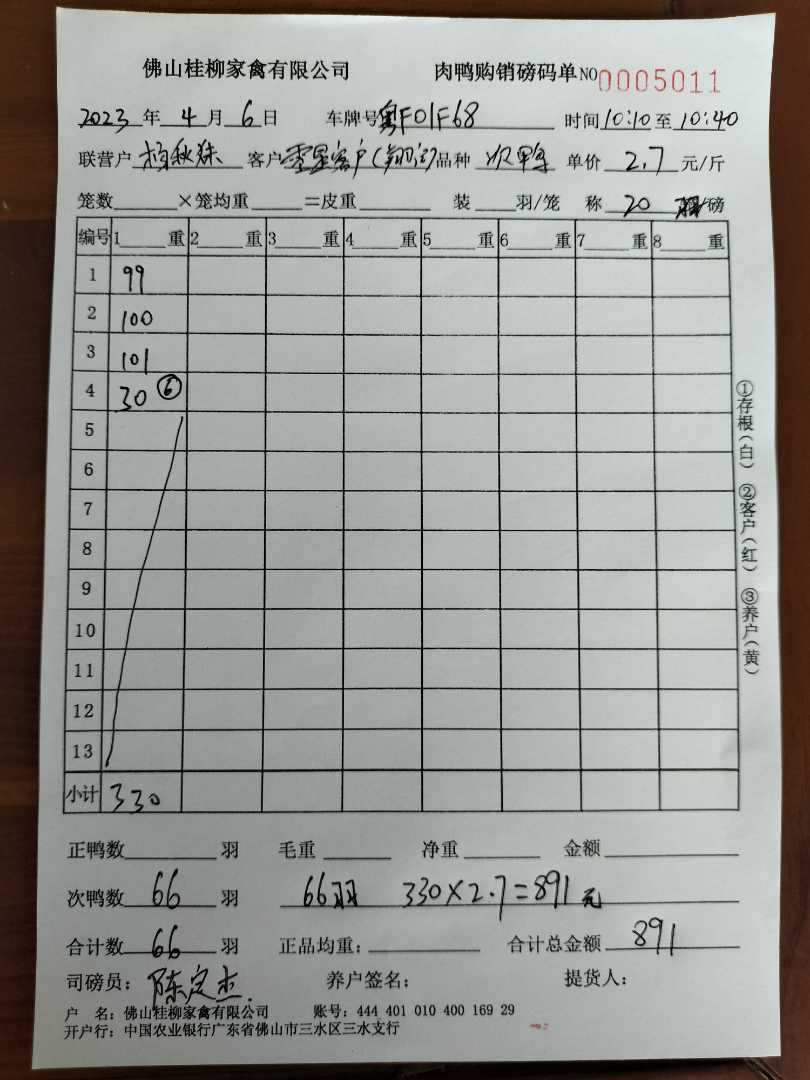 佛山桂柳家禽有限公司 肉鸭购销磅码单 NO 0005011
2023年4月6日 车牌号粤F01F68 时间10:10至10:40
联营户 杨秋珠 客户 零星客户( 品种 次鸭 单价 2.7 元/斤
笼数 ×笼均重 =皮重 装 羽/笼 称 20 磅
编号 1 重 2 重 3 重 4 重 5 重 6 重 7 重 8 重
1 99
2 100
3 101
4 30 ⑥
5
6
7
8
9
10
11
12
13
小计 330
①存根(白) ②客户(红) ③养户(黄)
正鸭数 羽 毛重 净重 金额
次鸭数 66 羽 66羽 330×2.7=891元
合计数 66 羽 正品均重: 合计总金额 891
司磅员: 陈定杰. 养户签名: 提货人:
户 名: 佛山桂柳家禽有限公司 账号: 444 401 010 400 169 29
开户行: 中国农业银行广东省佛山市三水区三水支行